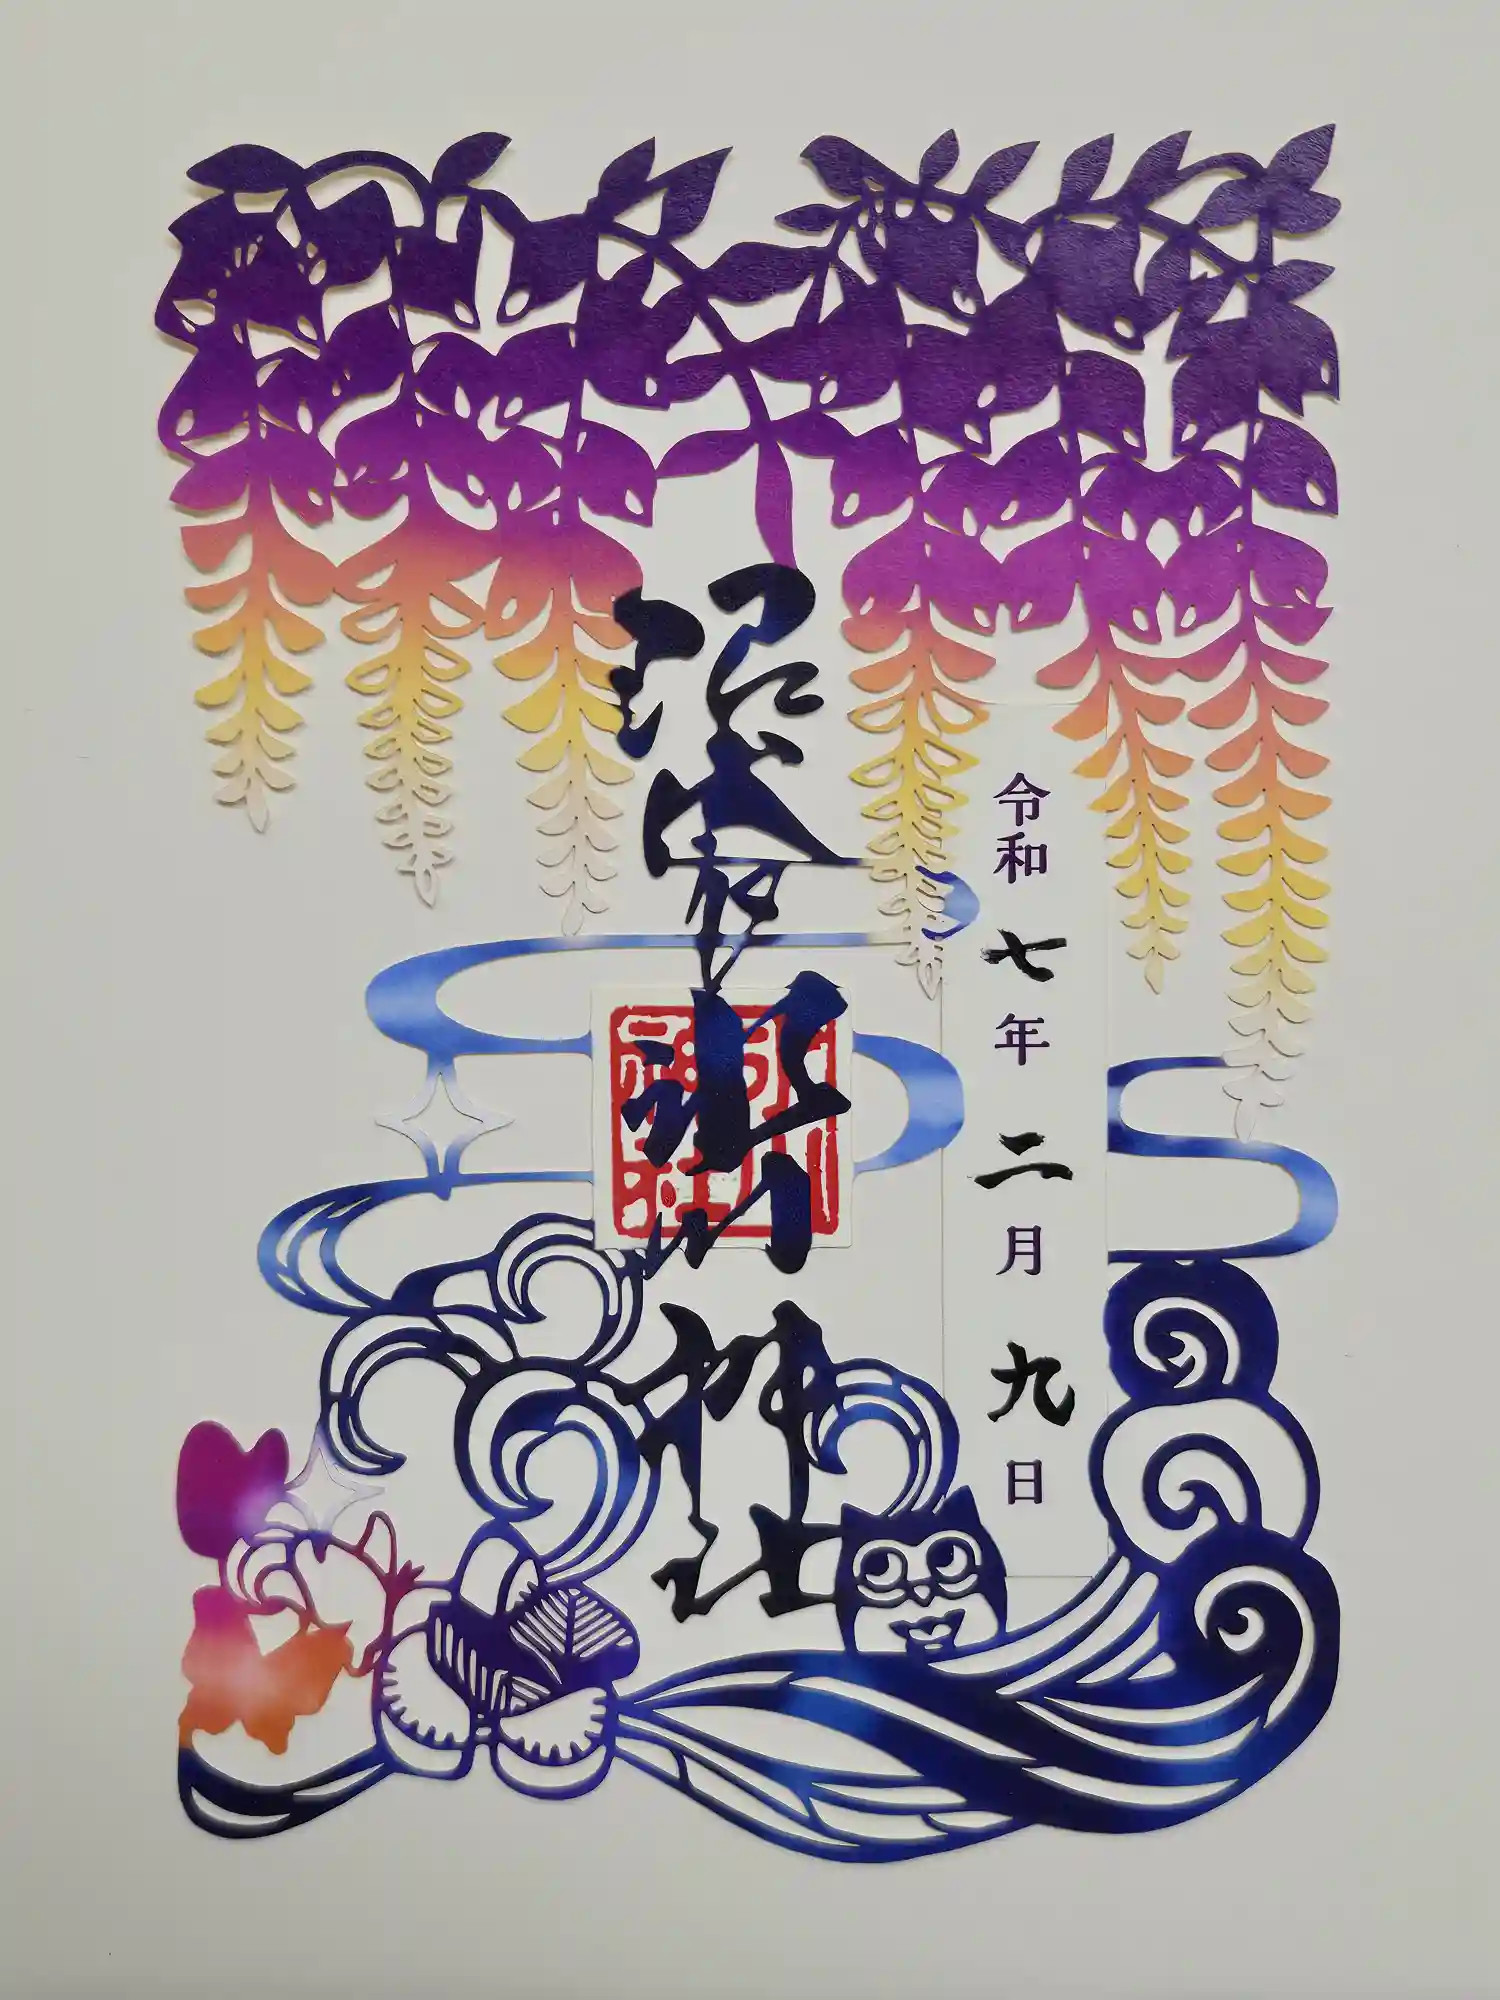 氷川神社
令和七年二月九日